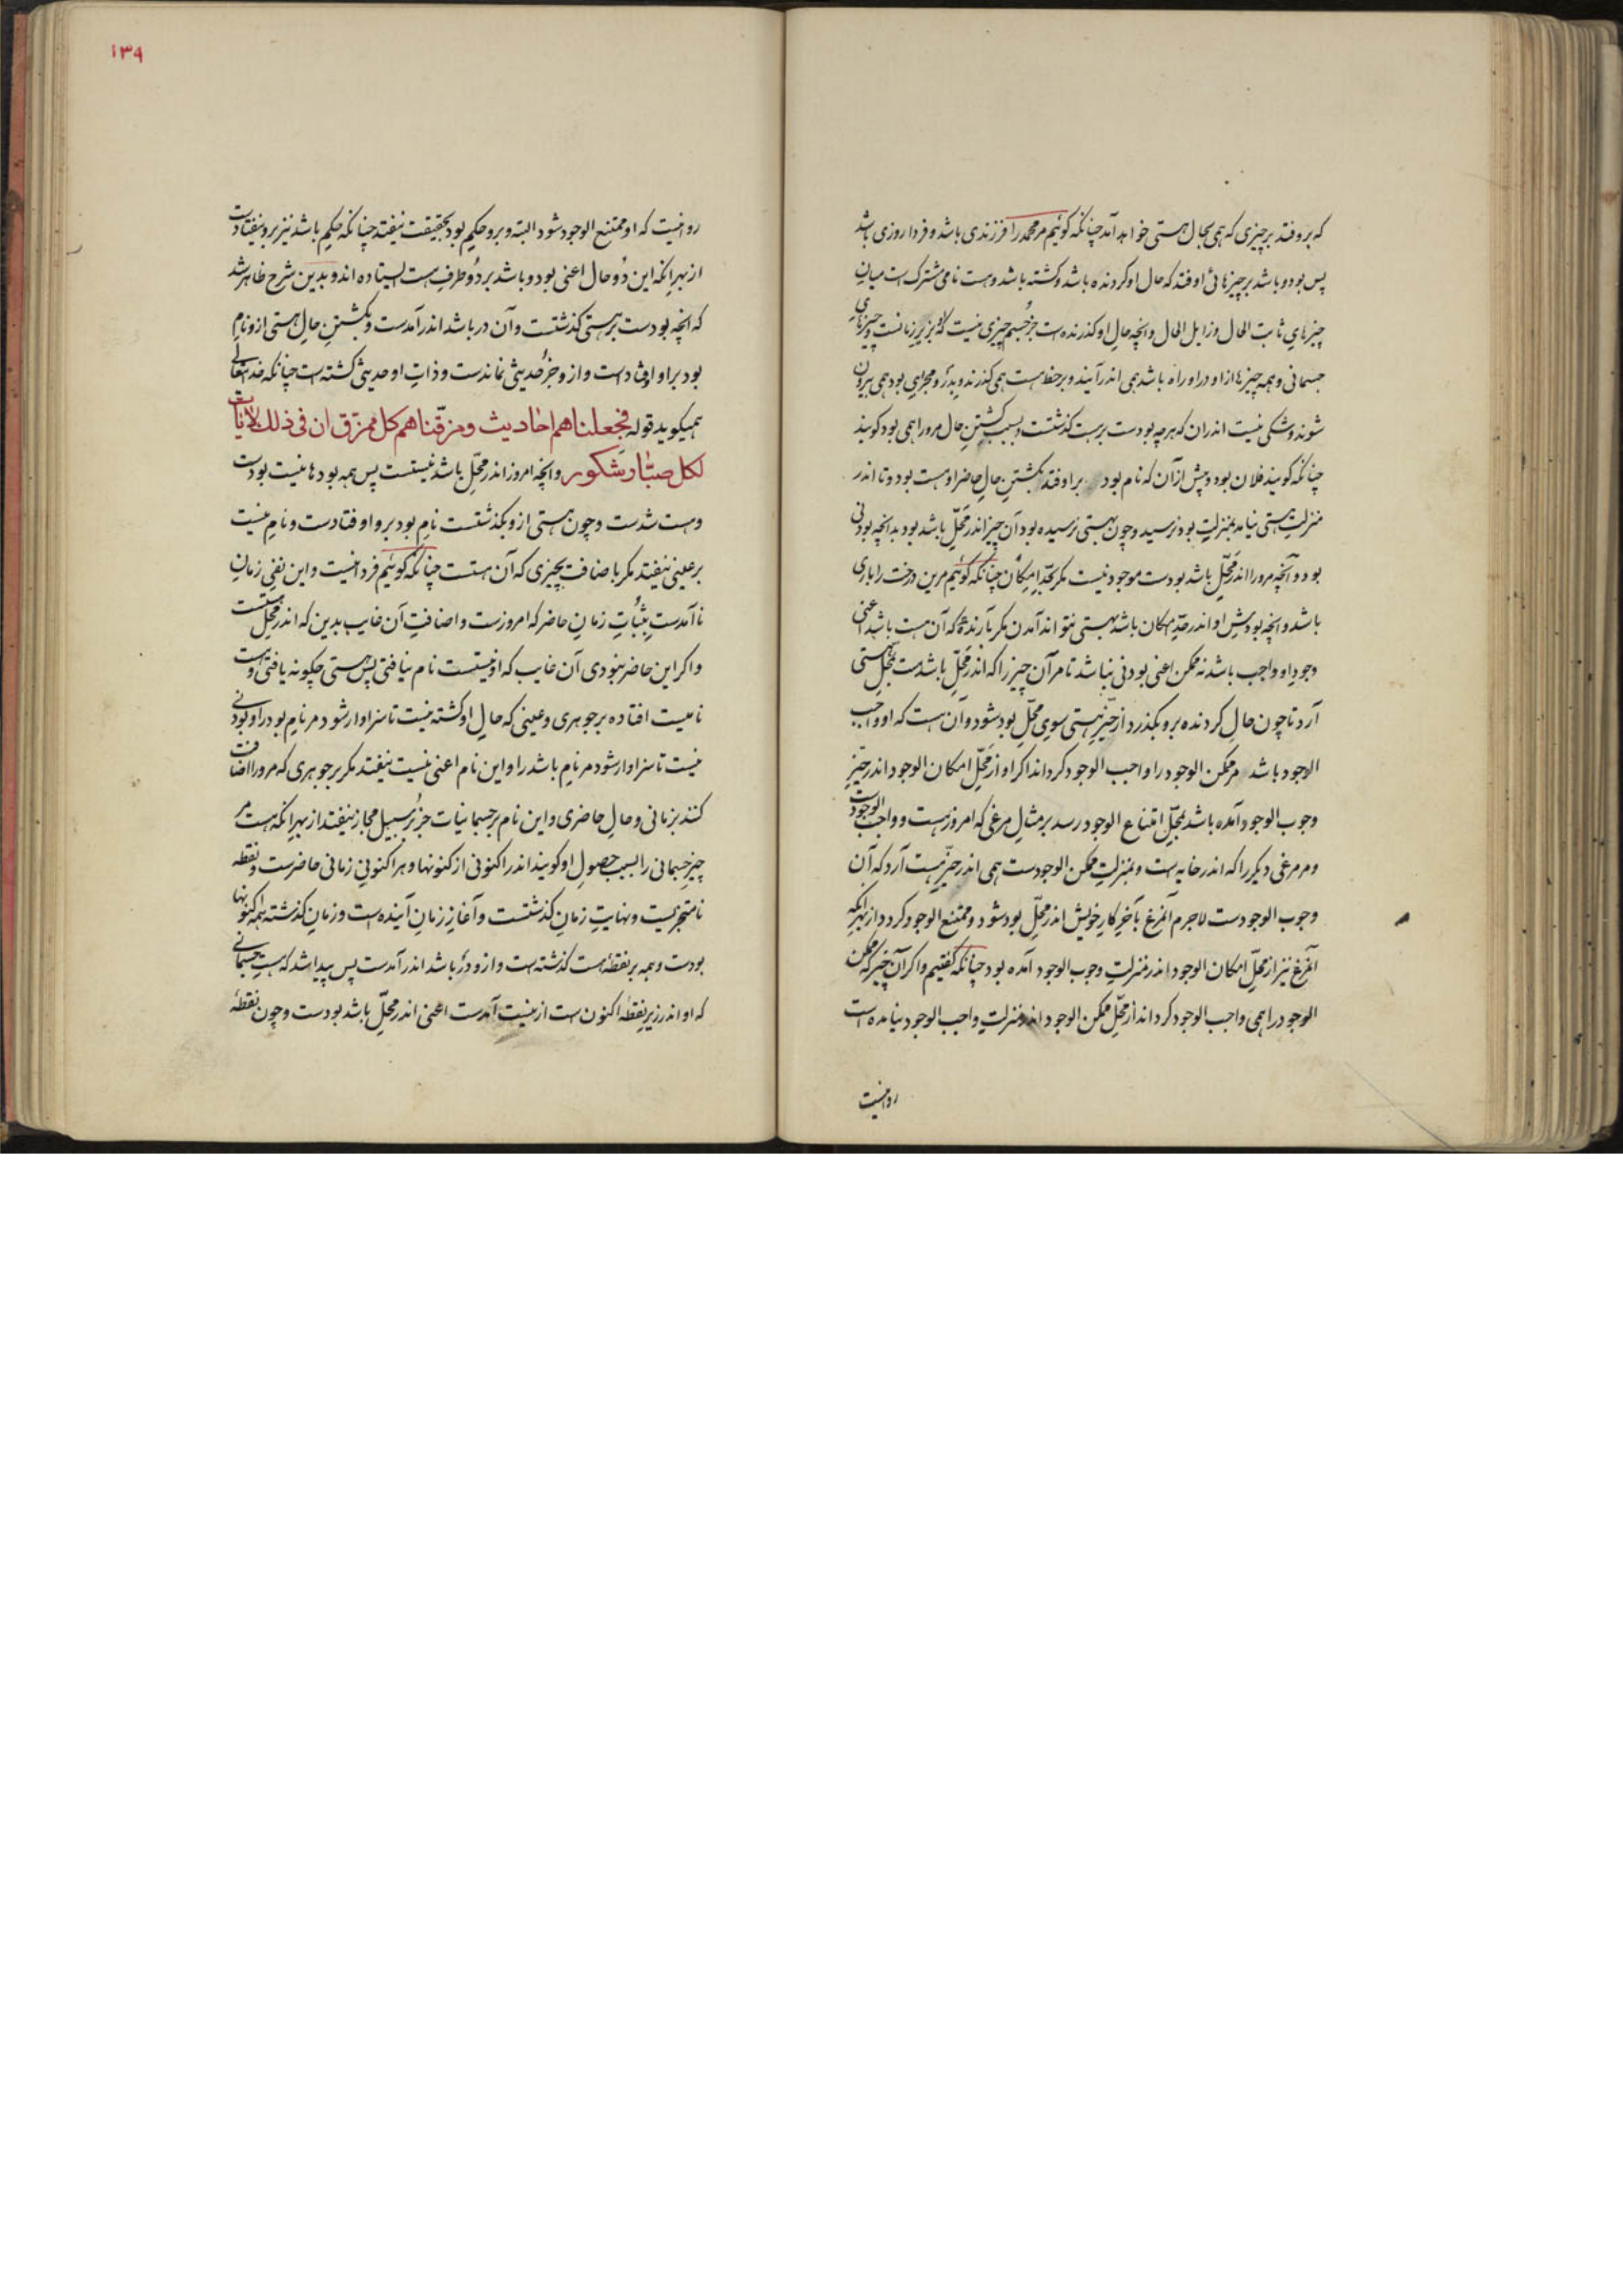 که بروفتد بر چیزی که همی بحال هستی خواهد آمد چنانکه گوئیم مر محمد را فرزندی باشد و فردا روزی باشد
پس بود و باشد بر چیزهائی اوفتد که حال او کردنده باشد و کشته باشد و هست نامی مشترک است میان
چیزهای ثابت الحال و زایل الحال و آنچه حال او کذرنده است جز جسم چیزی نیست که بزیر زمانست و چیزهای
جسمانی و همه چیزها از او در او راه باشد همی اندر آیند و بر خط هست همی کذرند و بدر و مجرای بود همی بیرون
شوند و شکی نیست اندران که هرچه بودست بر هست کذشتست و بسبب کشتن حال مرورا همی بود کویند
چنانکه کویند فلان بود و پیش از آن که نام بود بر اوفتد بکشتن حال حاضر او هست بود و تا اندر
منزلت هستی نیامد بمنزلت بود نرسید و چون بهستی نرسیده بود آن چیز اندر محل باشد بود بدانچه بودنی
بود و آنچه مرورا اندر محل باشد بودست موجود نیست مکر بحد امکان چنانکه کوئیم مرین درخت را باری
باشد و آنچه بودش او اندر حد امکان باشد بهستی نتواند آمدن مکر بآرنده که آن هست باشد اعنی
وجود او واجب باشد نه ممکن اعنی بودنی نباشد تا مر آن چیز را که اندر محل باشدست بمحل هستی
آرد تا چون حال کردنده برو بکذرد از حیز هستی سوی محل بود شود و آن هست که او واجب
الوجود باشد مر ممکن الوجود را واجب الوجود کرداند اکر او از محل امکان الوجود اندر حیز
وجوب الوجود آمده باشد بمحل امتناع الوجود رسد بر مثال مرغی که امروز هست و واجب الوجودست
و مر مرغی دیکر را که اندر خایه است و بمنزلت ممکن الوجودست همی اندر حیز هست آرد که آن
وجوب الوجودست لاجرم آنمرغ بآخر کار خویش اندر محل بود شود و ممتنع الوجود کردد از بهر آنکه
آنمرغ نیز از محل امکان الوجود اندر منزلت وجوب الوجود آمده بود چنانکه کفتیم و اکر آن چیز که ممکن
الوجود را همی واجب الوجود کرداند از محل ممکن الوجود اندر منزلت واجب الوجود نیامده است
روا نیست
۱۳۹
روا نیست که او ممتنع الوجود شود البته و برو حکم بود بحقیقت نیفتد چنانکه حکم باشد نیز برو نیفتادست
از بهر آنکه این دو حال اعنی بود و باشد بر دو طرف هست ایستاده اند و بدین شرح ظاهر شد
که آنچه بودست بر هستی کذشتست و آن در باشد اندر آمدست و بکشتن حال هستی ازو نام
بود بر او اوفتادست و ازو جز حدیثی نماندست و ذات او حدیثی کشته است چنانکه خدایتعالی
همیکوید قوله فجعلناهم احادیث ومزّقناهم کل ممزق ان فی ذلک لایات
لکل صبّار شکور و آنچه امروز اندر محل باشد نیستست پس همه بودها نیست بودست
و هست شدست و چون هستی ازو بکذشتست نام بود برو اوفتادست و نام نیست
بر عینی نیفتد مکر باضافت بچیزی که آن هستست چنانکه کوئیم فردا نیست و این نفی زمان
ناآمدست بثبات زمان حاضر که امروزست و اضافت آن غایب بدین که اندر محل هستست
و اکر این حاضر نبودی آن غایب که او نیستست نام نیافتی پس هستی چکونه یافتی و هست
نامیست افتاده بر جوهری و عینی که حال او کشته نیست تا سزاوار شود مر نام بود را و بودنی
نیست تا سزاوار شود مر نام باشد را و این نام اعنی نیست نیفتد مکر بر جوهری که مرورا اضافت
کنند بزمانی و حال حاضری و این نام بر جسمانیات جز بر سبیل مجاز نیفتد از بهر آنکه هست مر
چیز جسمانی را بسبب حصول او کویند اندر اکنونی از کنونها و هر اکنونی زمانی حاضرست و نقطه
نامتجزیست و نهایت زمان کذشتست و آغاز زمان آینده است و زمان کذشته همه اکنونها
بودست و همه بر نقطه هست کذشته است و از و در باشد اندر آمدست پس پیدا شد که هست جسمانی
که او اندر زیر نقطه اکنون است از نیست آمدست اعنی اندر محل باشد بودست و چون نقطه